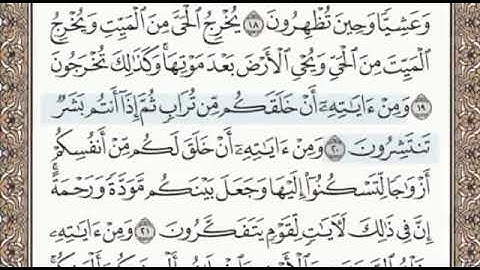 وَعَشِيًّا وَحِينَ تُظْهِرُونَ ١٨ يُخْرِجُ ٱلْحَىَّ مِنَ ٱلْمَيِّتِ وَيُخْرِجُ
ٱلْمَيِّتَ مِنَ ٱلْحَىِّ وَيُحْىِ ٱلْأَرْضَ بَعْدَ مَوْتِهَا وَكَذَٰلِكَ تُخْرَجُونَ
١٩ وَمِنْ ءَايَـٰتِهِۦٓ أَنْ خَلَقَكُم مِّن تُرَابٍ ثُمَّ إِذَآ أَنتُم بَشَرٌ
تَنتَشِرُونَ ٢٠ وَمِنْ ءَايَـٰتِهِۦٓ أَنْ خَلَقَ لَكُم مِّنْ أَنفُسِكُمْ
أَزْوَٰجًا لِّتَسْكُنُوٓا۟ إِلَيْهَا وَجَعَلَ بَيْنَكُم مَّوَدَّةً وَرَحْمَةً
إِنَّ فِى ذَٰلِكَ لَـَٔايَـٰتٍ لِّقَوْمٍ يَتَفَكَّرُونَ ٢١ وَمِنْ ءَايَـٰتِهِۦ